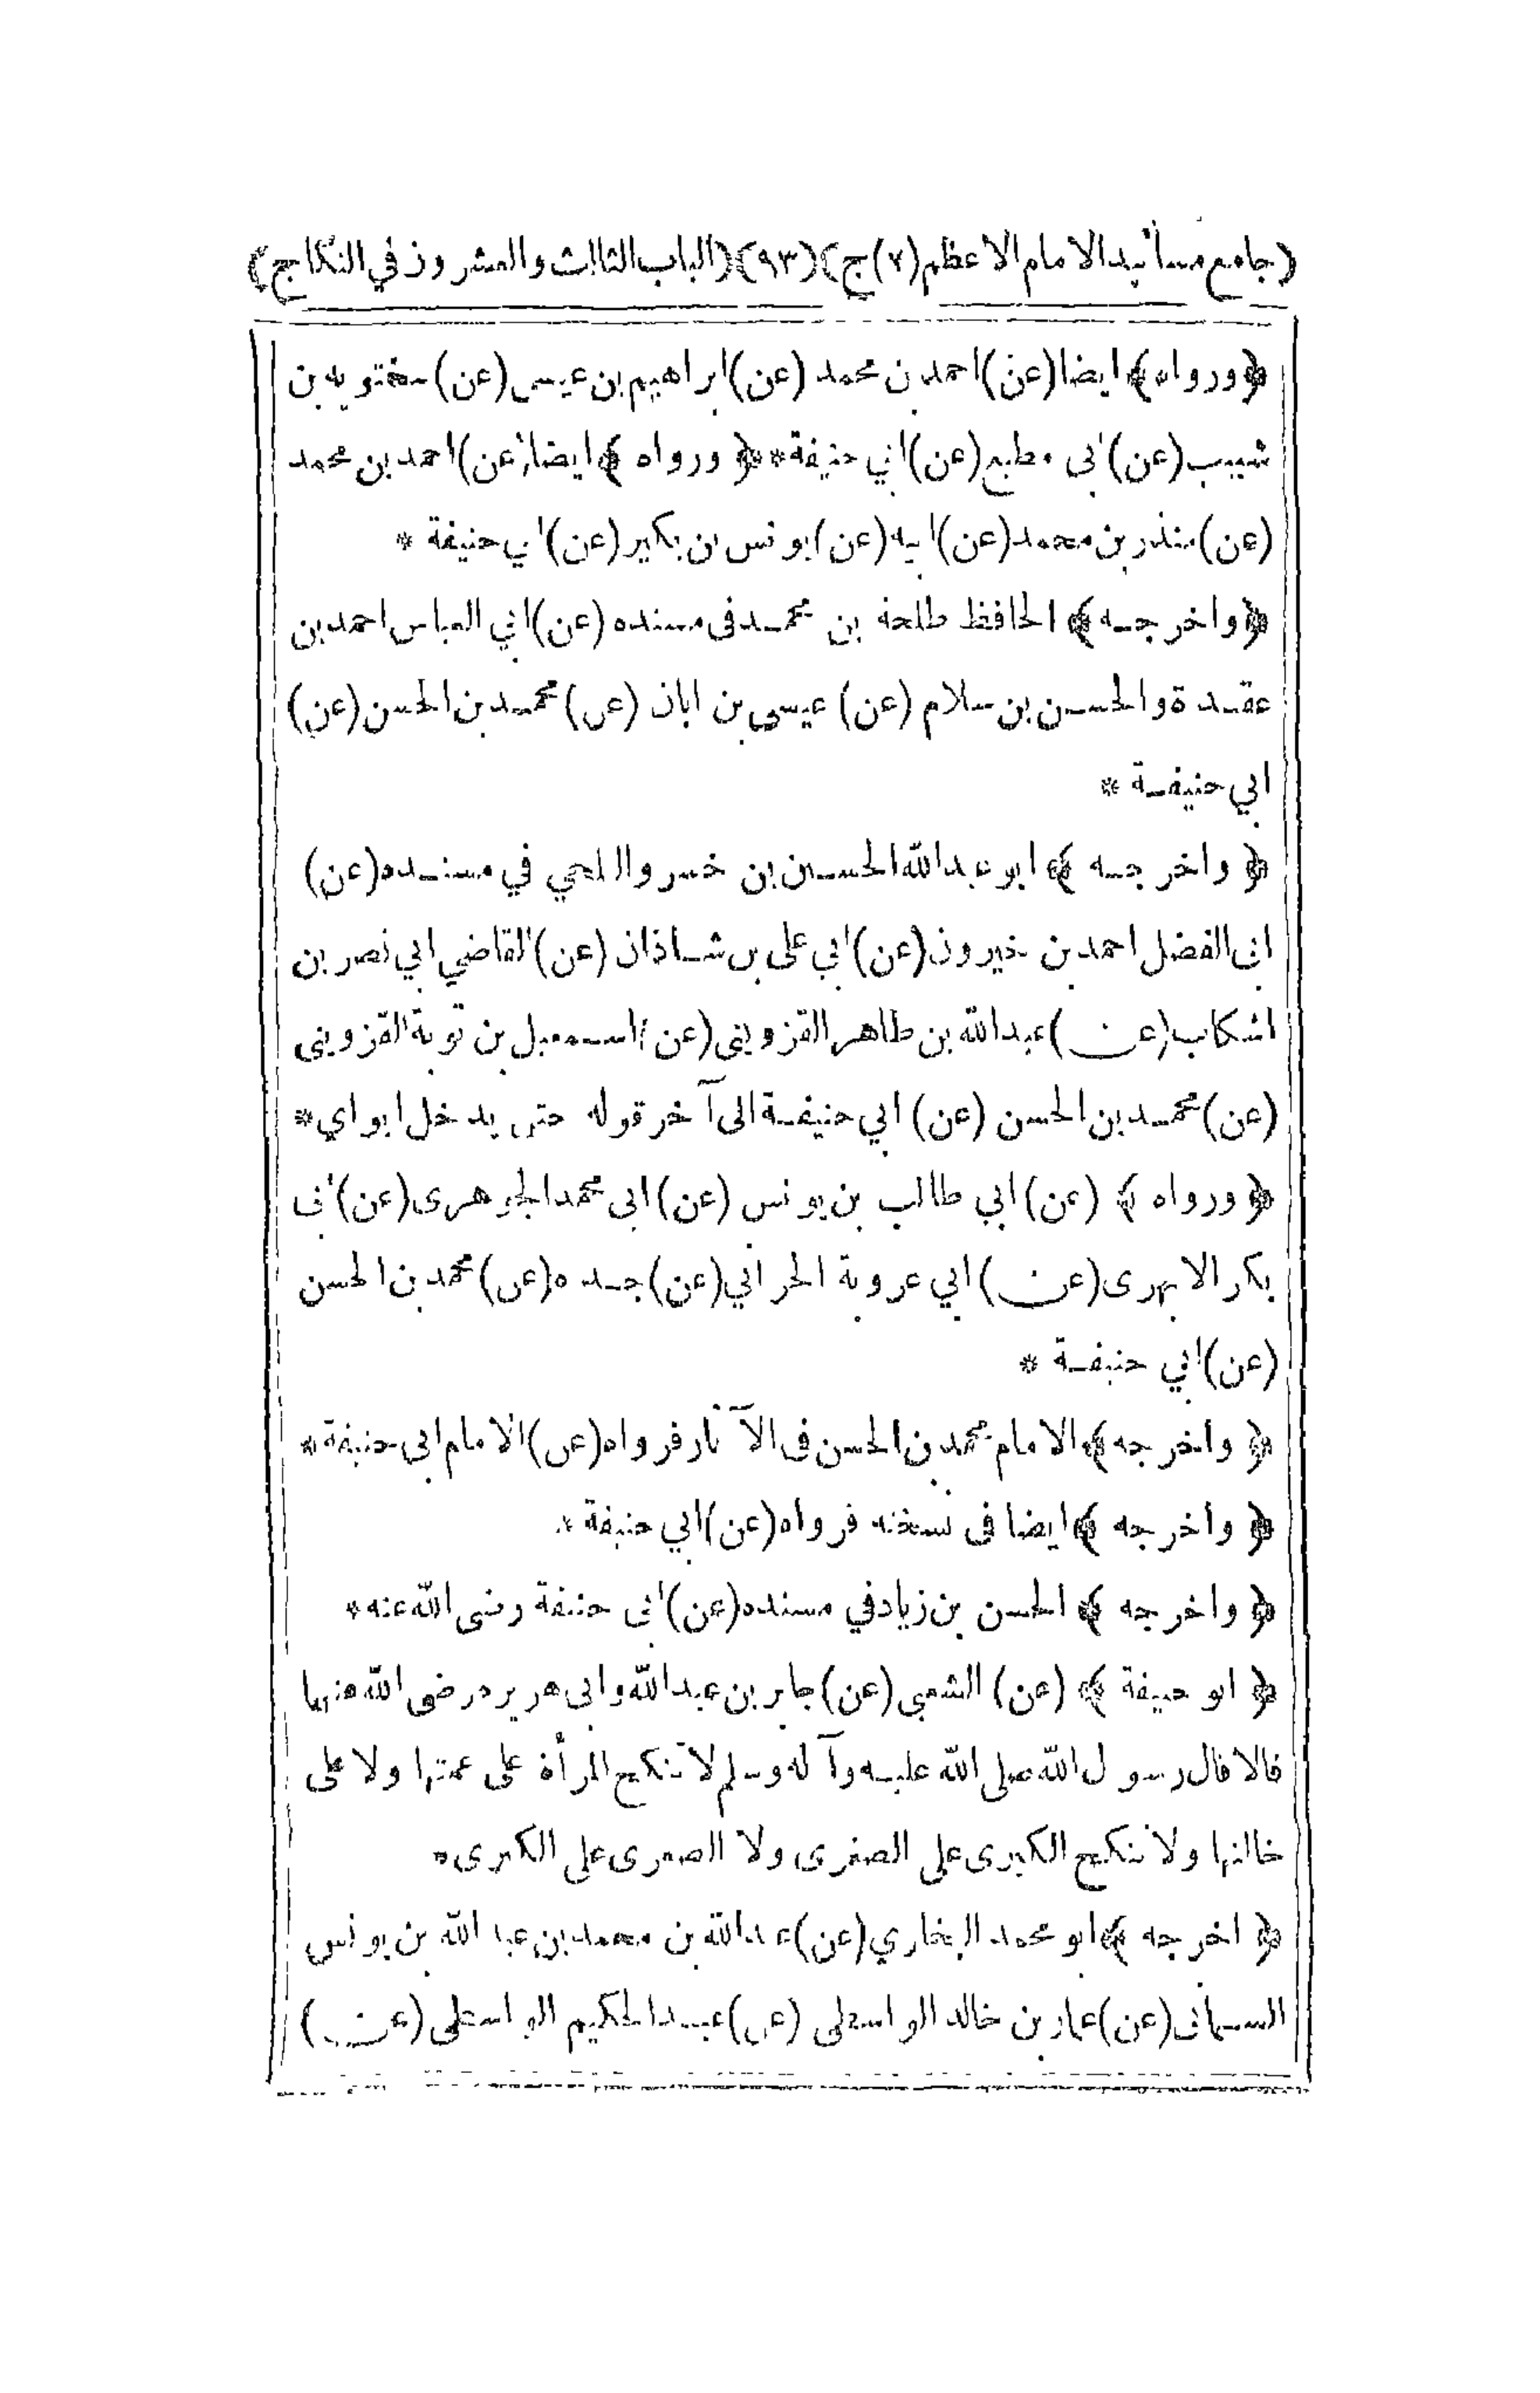 (جامع مسانيد الامام الاعظم (٢) ج) (٩٣) (الباب الثالث والعشرون في النكاح)
﴿ورواه﴾ ايضا (عن) احمد بن محمد (عن) ابراهيم بن عيسى (عن) سختويه بن
شبيب (عن) ابى مطيع (عن) ابي حنيفة * ﴿ ورواه ﴾ ايضا (عن) احمد بن محمد
(عن) منذر بن محمد (عن) ابيه (عن) يونس بن بكير (عن) ابي حنيفة *
﴿واخرجه﴾ الحافظ طلحة بن محمد فى مسنده (عن) ابي العباس احمد بن
عقدة والحسن بن سلام (عن) عيسى بن ابان (عن) محمد بن الحسن (عن)
ابي حنيفة *
﴿ واخرجه ﴾ ابو عبد الله الحسين بن خسرو البلخي في مسنده (عن)
ابى الفضل احمد بن خيرون (عن) ابي على بن شاذان (عن) القاضي ابي نصر بن
اشكاب (عن) عبد الله بن طاهر القزوينى (عن) اسمعيل بن توبة القزوينى
(عن) محمد بن الحسن (عن) ابي حنيفة الى آخر قوله حتى يدخل ابواي *
﴿ ورواه ﴾ (عن) ابي طالب بن يونس (عن) ابى محمد الجوهرى (عن) ابى
بكر الابهرى (عن) ابي عروبة الحراني (عن) جده (عن) محمد بن الحسن
(عن) ابي حنيفة *
﴿ واخرجه ﴾ الامام محمد بن الحسن فى الآثار فرواه (عن) الامام ابى حنيفة *
﴿ واخرجه ﴾ ايضا فى نسخته فرواه (عن) ابي حنيفة *
﴿ واخرجه ﴾ الحسن بن زياد في مسنده (عن) ابى حنيفة رضى الله عنه *
﴿ ابو حنيفة ﴾ (عن) الشعبي (عن) جابر بن عبد الله وابى هريرة رضى الله عنهما
قالا قال رسول الله صلى الله عليه وآله وسلم لا تنكح المرأة على عمتها ولا على
خالتها ولا تنكح الكبرى على الصغرى ولا الصغرى على الكبرى *
﴿ اخرجه ﴾ ابو محمد البخاري (عن) عبد الله بن محمد بن عبد الله بن يونس
السمنانى (عن) عمار بن خالد الواسطى (عن) عبد الحكيم الواسطى (عن)